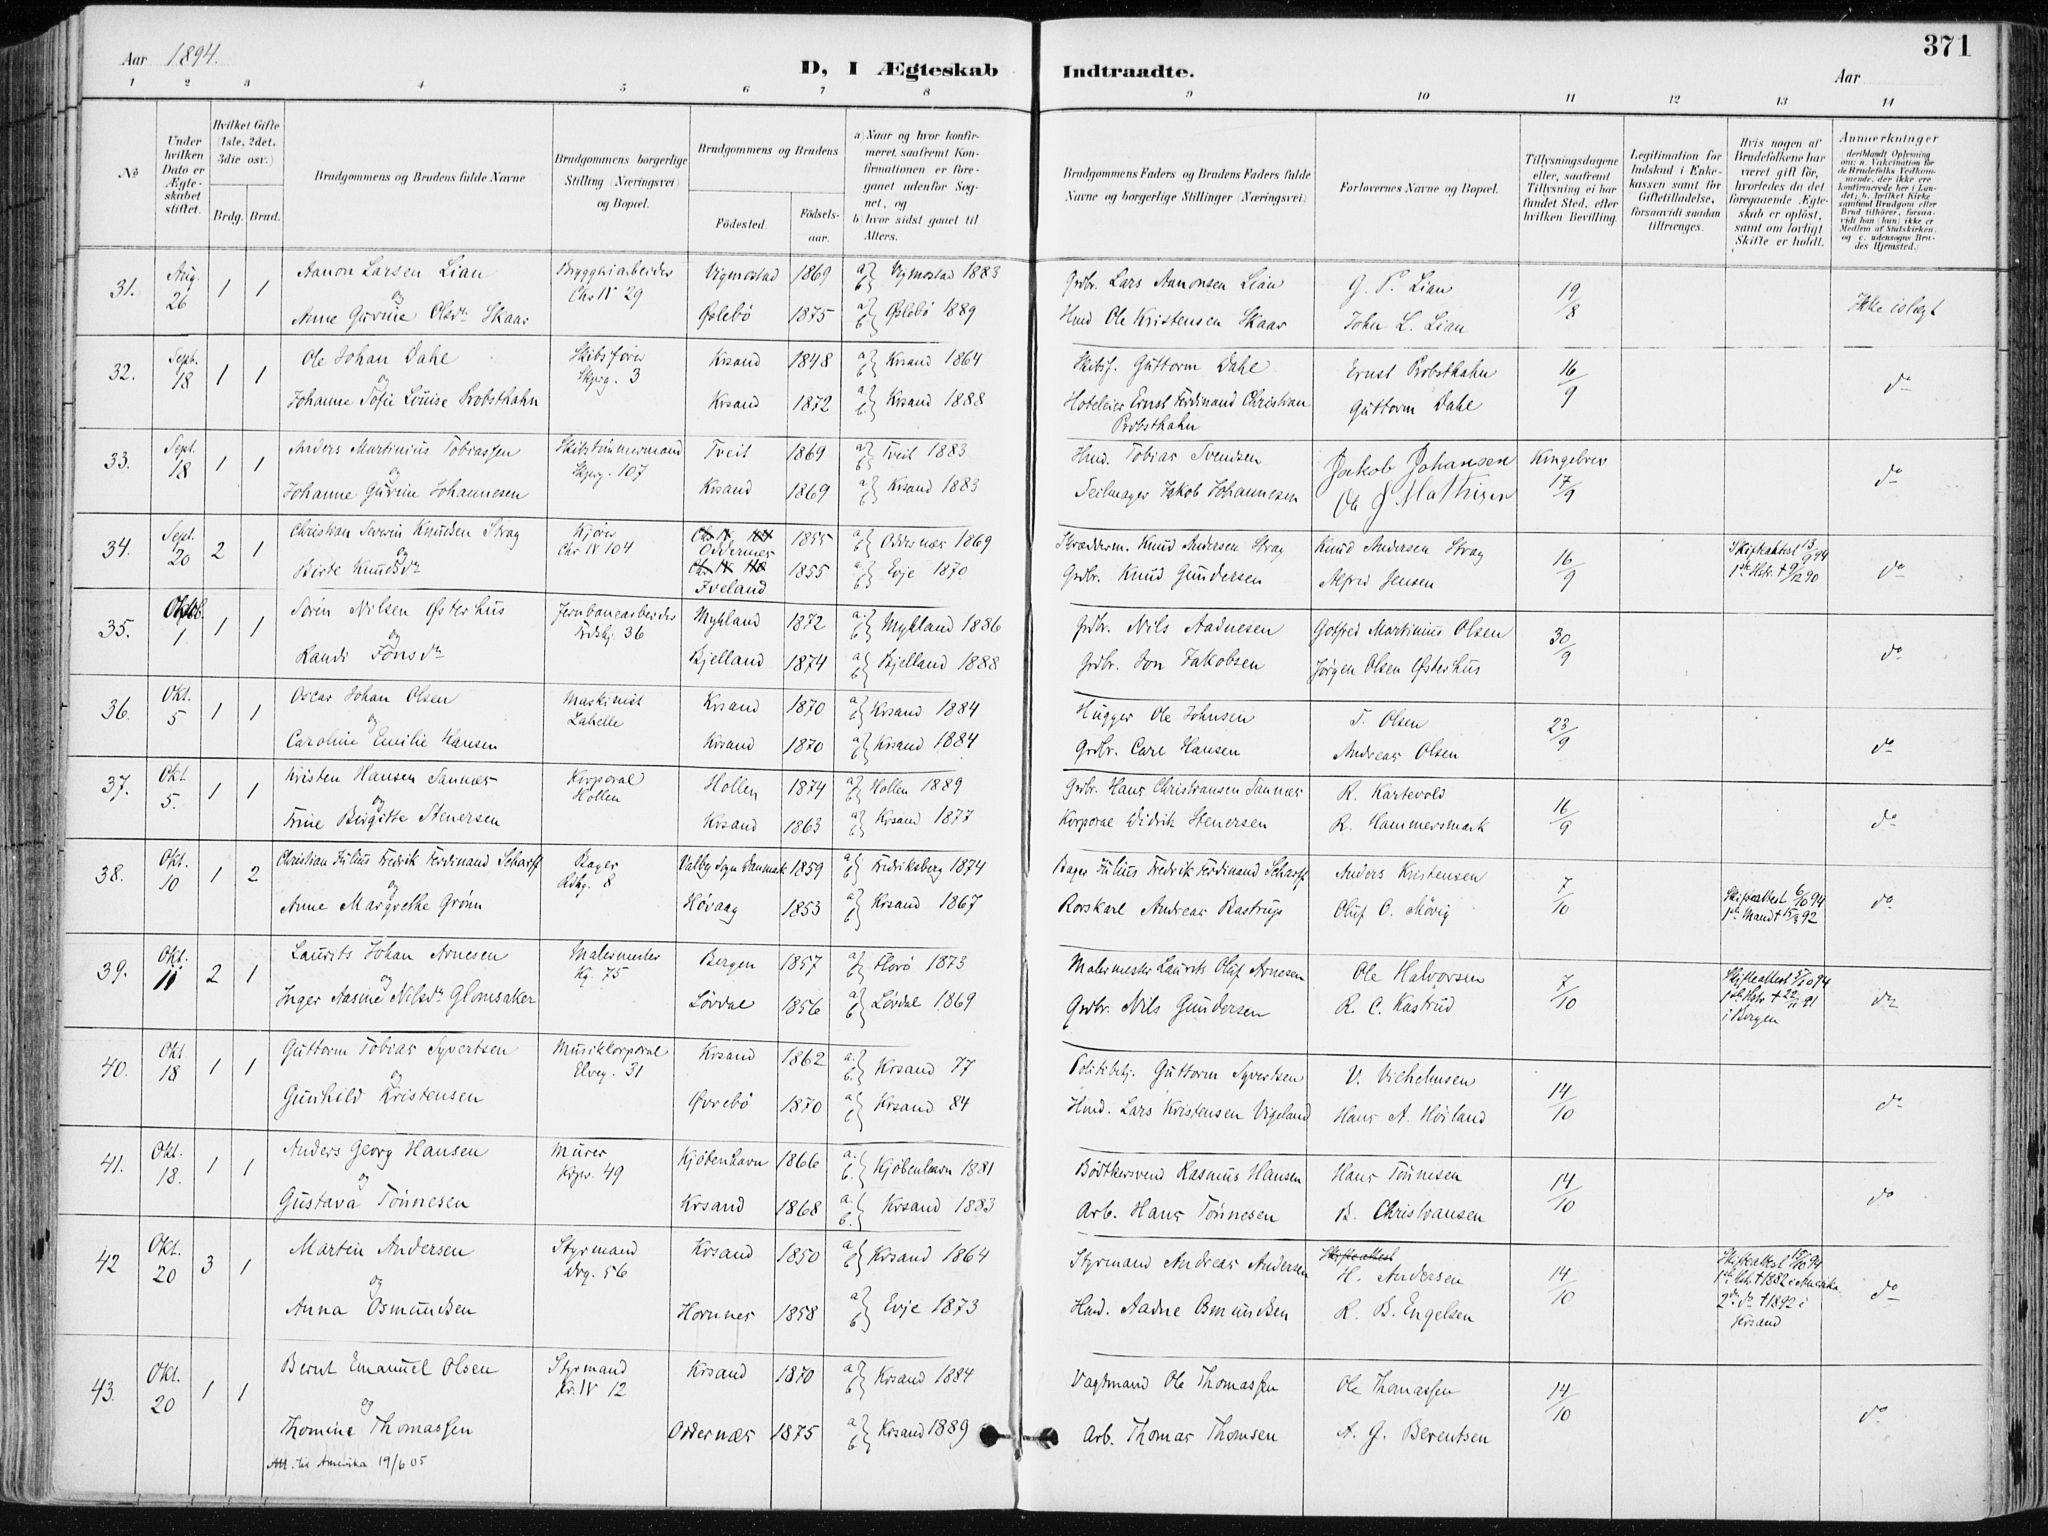 371
Aar 1894.
D, I Ægteskab Indtraadte.
Aar
1 2 3 4 5 6 7 8 9 10 11 12 13 14
No
Under hvilken Dato er Ægteskabet stiftet.
Hvilket Gifte (1ste, 2det, 3die osv.)
Brdg. Brud.
Brudgommens og Brudens fulde Navne
Brudgommens borgerlige Stilling (Næringsvei) og Bopæl.
Brudgommens og Brudens
Fødested. Fødselsaar.
a) Naar og hvor konfirmeret, saafremt Konfirmationen er foregaaet udenfor Sognet, og
b) hvor sidst gaaet til Alters.
Brudgommens Faders og Brudens Faders fulde Navne og borgerlige Stillinger (Næringsvei)
Forlovernes Navne og Bopæl.
Tillysningsdagene eller, saafremt Tillysning ei har fundet Sted, efter hvilken Bevilling.
Legitimation for Indskud i Enkekassen samt for Giftetilladelse, forsaavidt saadan tiltrænges.
Hvis nogen af Brudefolkene har været gift før, hvorledes da det foregaaende Ægteskab er opløst, samt om lovligt Skifte er holdt.
Anmerkninger
31. Aug. 26 1 1 Aanon Larsen Lian Bryggeriarbeider Vigmostad 1869 a) b) Vigmostad 1883 Grdbr. Lars Aanonsen Lian G. P. Lian 19/8 Ikke i slægt
og Chr IV 29
Anne Gurine Olsdr Skaar Øslebö 1875 a) b) Øslebö 1889 Hmd Ole Kristensen Skaar John L. Lian
32. Sept. 18 1 1 Ole Johan Dahl Skibsfører Krsand 1848 a) b) Krsand 1864 Skibsf. Guttorm Dahl Ernst Probsthahn 16/9 do
og Skprg. 3
Johanne Sofie Louise Probsthahn Krsand 1872 a) b) Krsand 1888 Hoteleier Ernst Ferdinand Christian Probsthahn Guttorm Dahl
33. Sept. 18 1 1 Anders Martinius Tobiassen Skibstømmermand Tveit 1869 a) b) Tveit 1883 Hmd. Tobias Svendsen Jakob Johansen Kongebrev 17/9 do
og Skprg. 107
Johanne Gurine Johannesen Krsand 1869 a) b) Krsand 1883 Seilmager Jakob Johannesen Ole J Mathisen
34. Sept. 20 2 1 Christian Severin Knudsen Strag Kjører Oddernes 1855 a) b) Oddernæs 1869 Skræдderm. Knud Andersen Strag Knud Andersen Strag 16/9 Skifteattest 13/9 94 do
og Chr IV 104 1ste Hstr. + 9/12 90
Birte Knudsdr Iveland 1855 a) b) Evje 1870 Grdbr. Knud Gundersen Alfred Jensen
35. Oktob. 1 1 1 Søren Nilsen Østerhus Jernbanearbeider Mykland 1872 a) b) Mykland 1886 Grdbr. Nils Aadnesen Gotfred Martinius Olsen 30/9 do
og 36
Randi Jonsdr Bjelland 1874 a) b) Bjelland 1888 Grdbr. Jon Jakobsen Jørgen Olsen Østerhus
36. Okt. 5 1 1 Oscar Johan Olsen Maskinist Krsand 1870 a) b) Krsand 1884 Hugger Ole Johnsen T. Olsen 23/9 do
og Lahelle
Caroline Emilie Hansen Krsand 1870 a) b) Krsand 1884 Grdbr. Carl Hansen Andreas Olsen
37. Okt 5. 1 1 Kristen Hansen Sannæs Korporal Hollen 1874 a) b) Hollen 1889 Grdbr. Hans Christiansen Sannæs R. Kartevold 16/9 do
og Hollen
Trine Birgitte Stenersen Krsand 1863 a) b) Krsand 1877 Korporal Didrik Stenersen R. Hammersmark
38. Okt. 10 1 2 Christian Julius Fredrik Ferdinand Scharff Bager Valby Sogn Danmark 1859 a) b) Fredriksberg 1874 Bager Julius Fredrik Ferdinand Scharff Anders Kristensen 7/10 Skifteattest 6/10 94 do
og Rdhg. 8 1ste Mand + 15/3 92
Anne Margrethe Grönn Høvaag 1853 a) b) Krsand 1867 Rorskarl Andreas Bastrup Oluf O. Møvig
39. Okt. 11 2 1 Laurits Johan Arnesen Malermester Bergen 1857 a) b) Florø 1873 Malermester Laurits Oluf Arnesen Ole Halvorsen 7/10 Skifteattest 5/10 94 do
og Kg. 75 1ste Hstr + 22/11 91
Inger Aasine Nilsdr Glomsaker Løvdal 1856 a) b) Løvdal 1869 Grdbr. Nils Gundersen R. C. Kastrud i Bergen
40. Okt 18 1 1 Guttorm Tobias Syvertsen Musikkorporal Krsand 1862 a. b. Krsand 77 Politibetj. Guttorm Syvertsen V. Vilhelmsen 14/10 do
og Elveg. 31
Gunhild Kristensen Øvrebö 1870 a) b) Krsand 84 Hmd. Lars Kristensen Vigeland Hans A. Høiland
41. Okt. 18. 1 1 Anders Georg Hansen Murer Kjøbenhavn 1866 a. b. Kjøbenhavn 1881 Bødtkersvend Rasmus Hansen Hans Tønnesen 14/10 do
og 49
Gustava Tönnesen Krsand 1868 a. b. Krsand 1883 Arb. Hans Tönnesen B. Christiansen
42 Okt. 20 3 1 Martin Andersen Styrmand Krsand 1850 a) b) Krsand 1864 Styrmand Andreas Andersen H. Andersen 14/10 Skifteattest 15/10 94 do
og Drg. 56 1ste Hstr. + 1882 i Amerika
Anna Osmundsen Hornnes 1858 a) b) Evje 1873 Hmd. Aadne Osmundsen R. B. Engelsen 2den do + 1892 i Krsand
43. Okt. 20 1 1 Bernt Emanuel Olsen Styrmand Krsand 1870 a) b) Krsand 1884 Vagtmand Ole Thomassen Ole Thomassen 14/10 do
og Kr. IV 12
Thomine Thomassen Oddernæs 1875 a) b) Krsand 1889 Arb. Thomas Thomsen A. G. Berentsen
Att. til Amerika 19/6 05